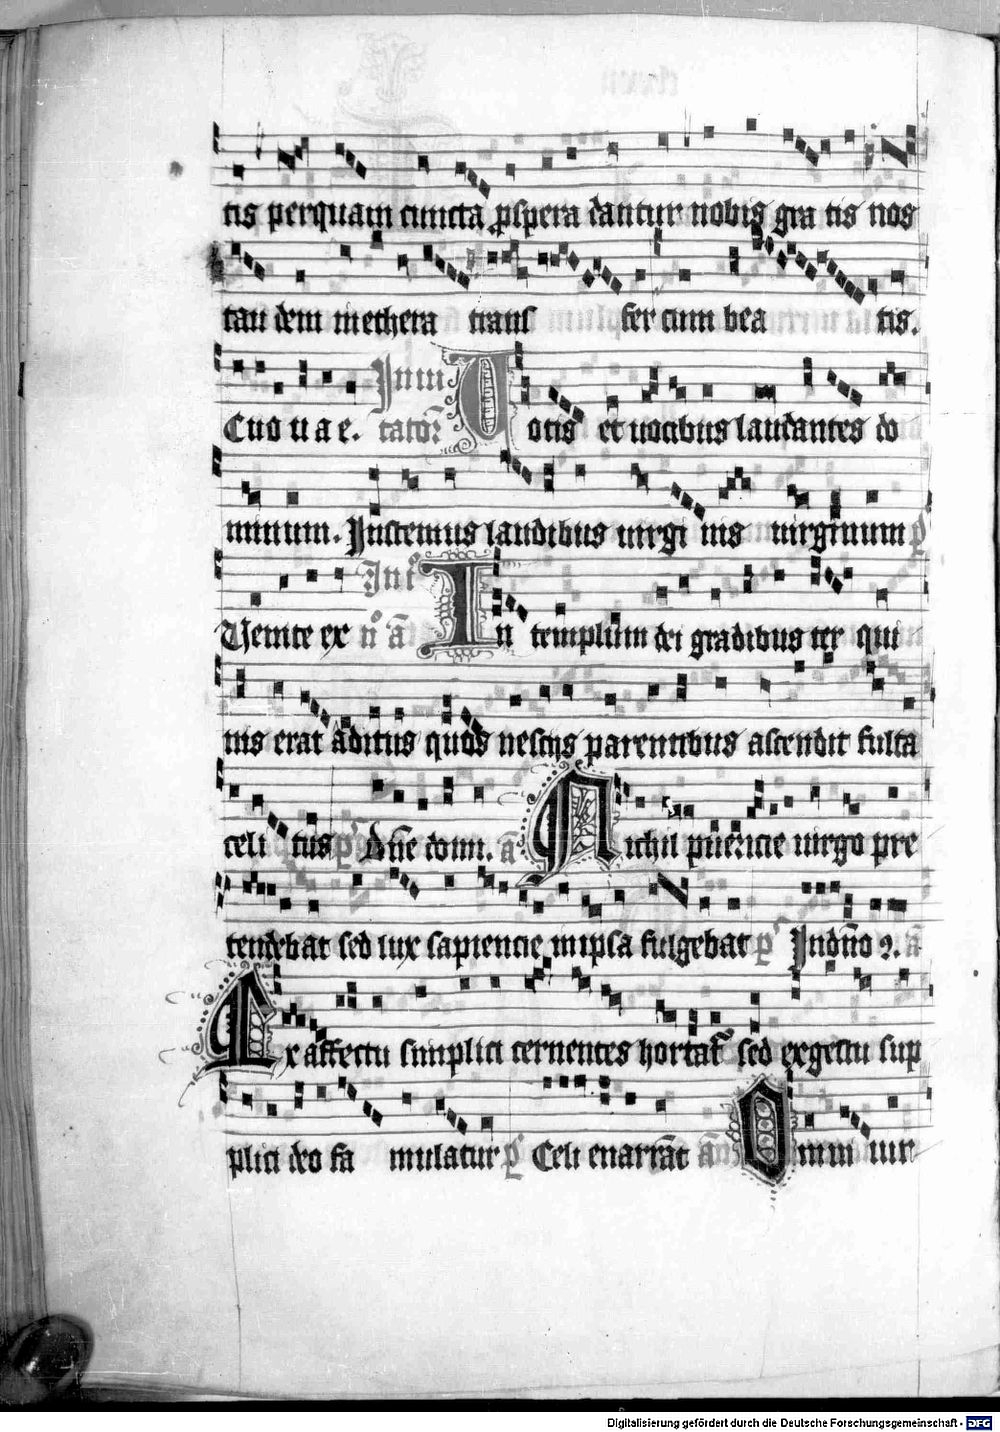 tis perquam cuncta ꝓspera dantur nobis gra tis nos
tan dem in ethera trans fer cum bea tis.
Euouae. Inui tator Uotis et uocibus laudantes do
minum. Instemus laudibus uirgi nis uirginum ps
Uenite ex In templum dei gradibus ter qui
nis erat aditus quos nescijs parentibus ascendit fulta
celi tus ps Dn̄e dom. a Nichil puericie uirgo pre
tendebat sed lux sapiencie in ipsa fulgebat ps In dn̄o a
Ex affectu simplici cernentes hortat̄ sed ex gestu sup
plici deo fa mulatur ps Celi enarrāt an Omni uir
Digitalisierung gefördert durch die Deutsche Forschungsgemeinschaft - DFG